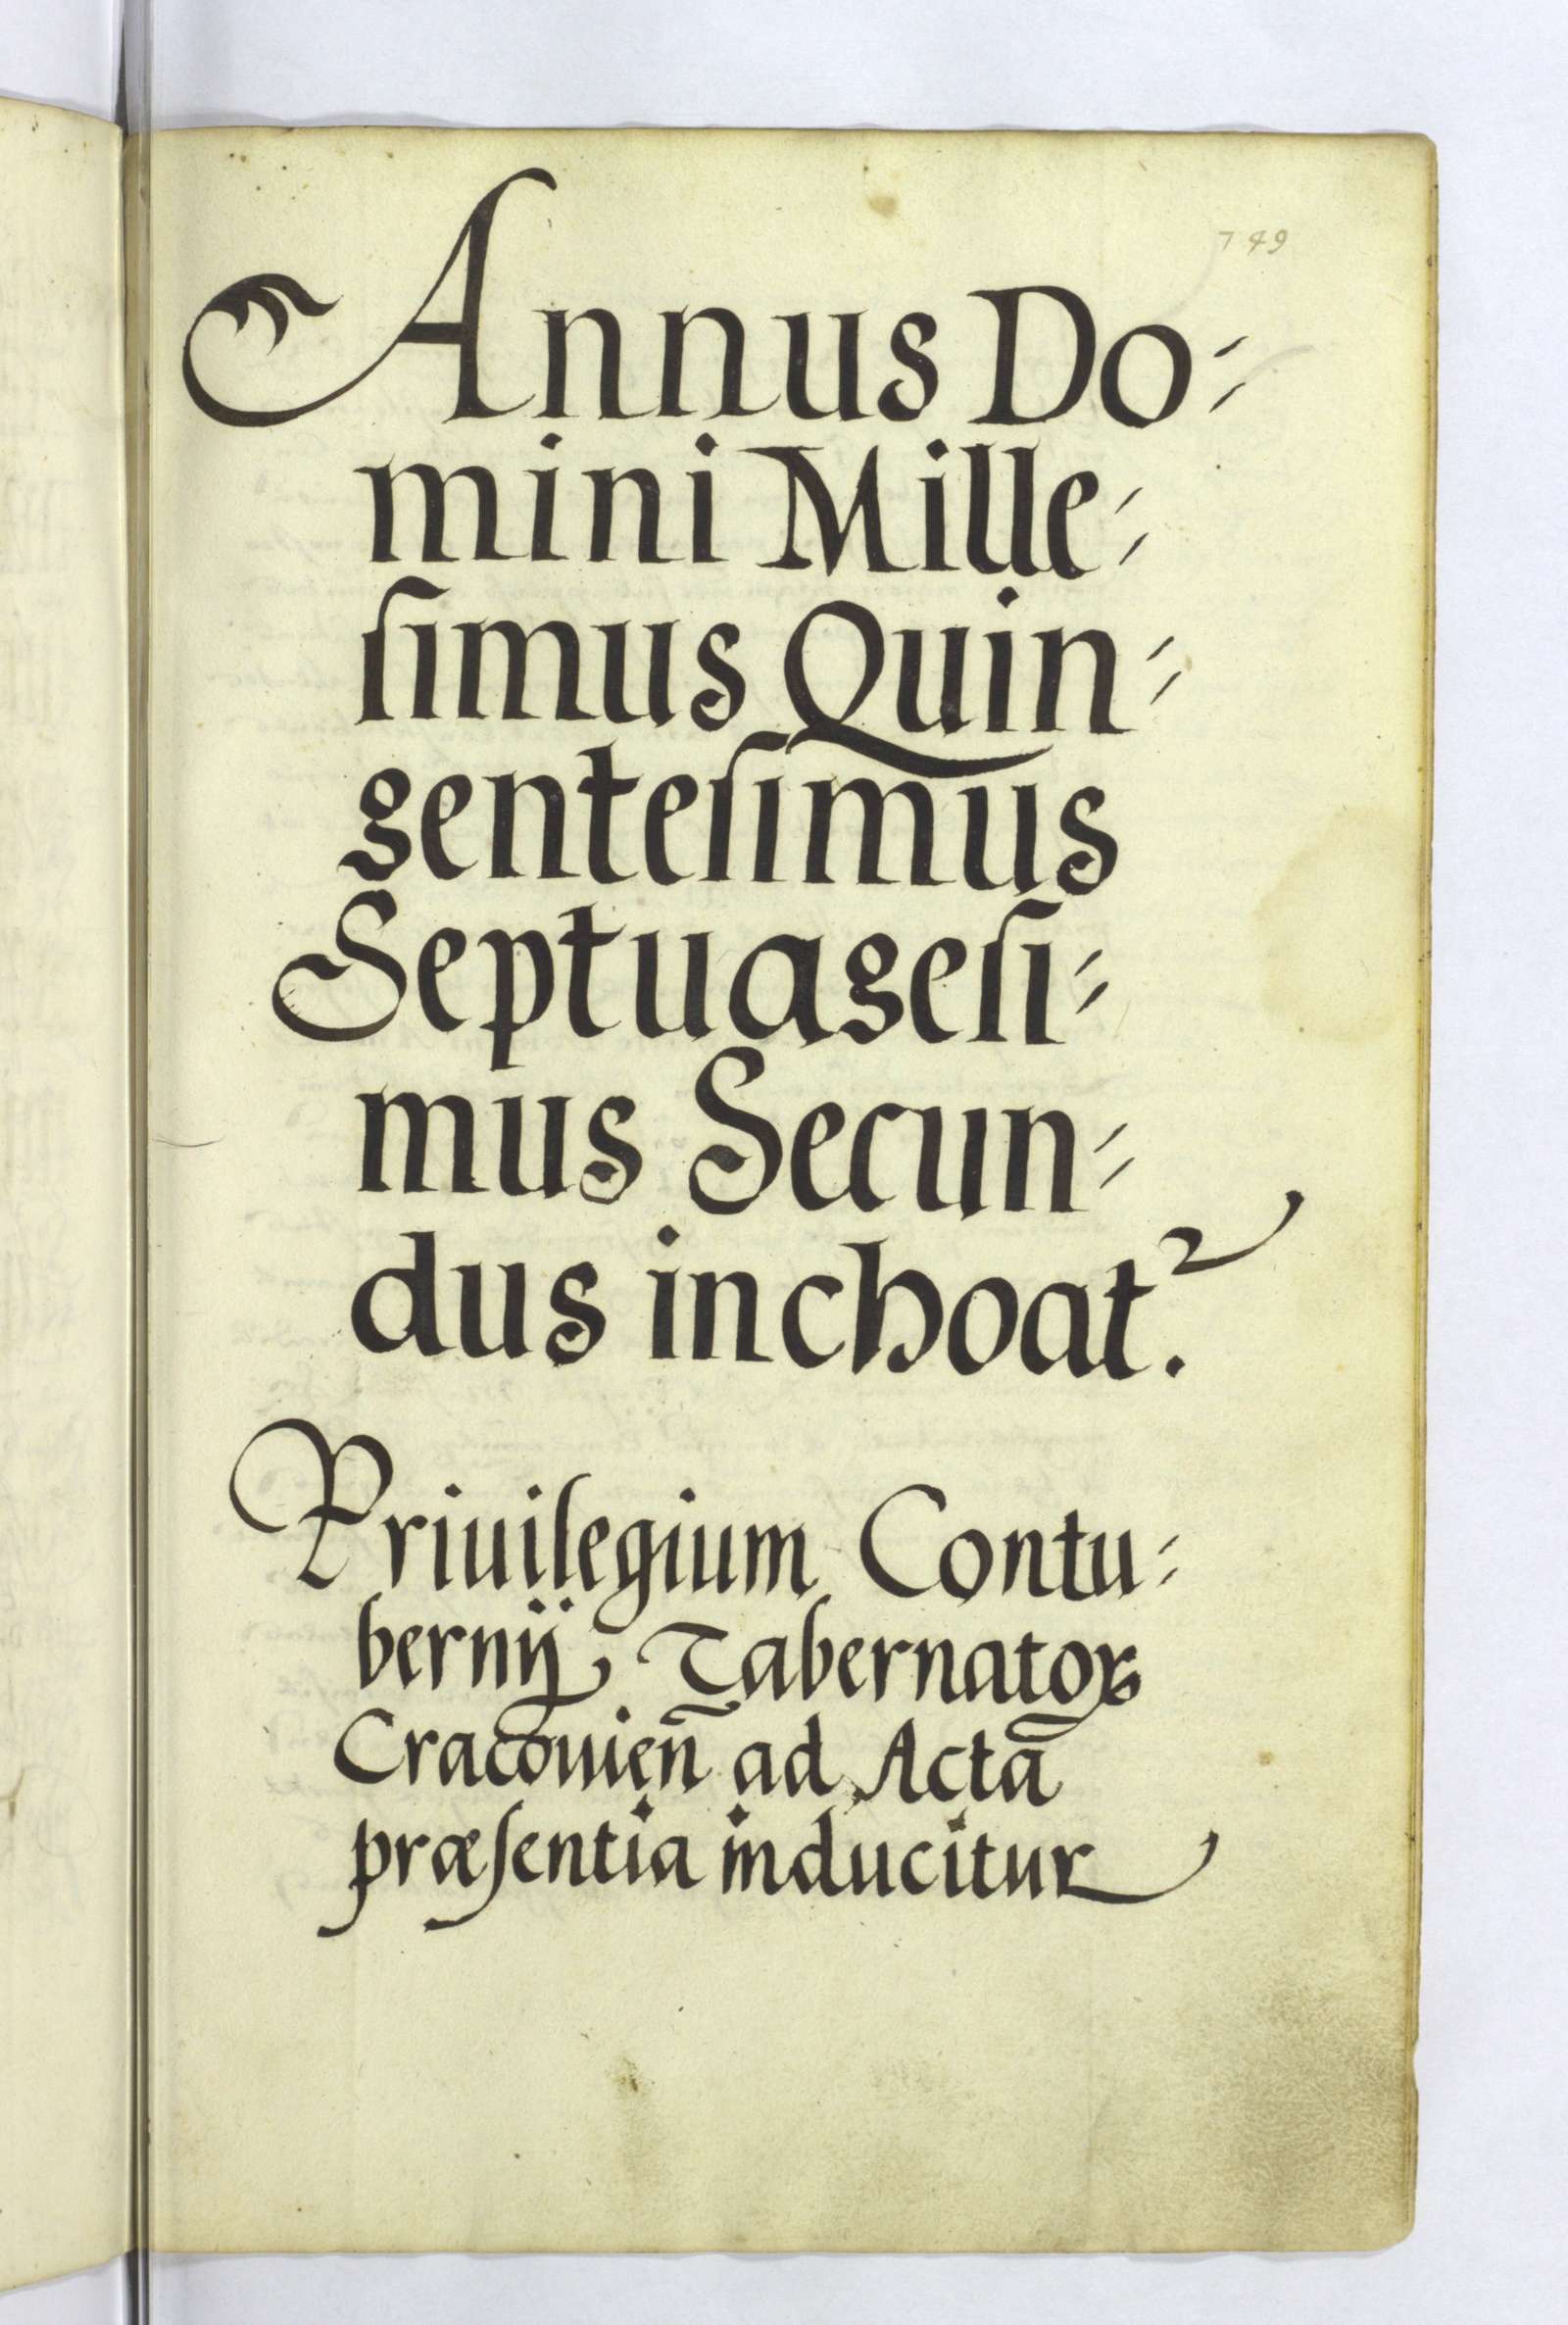 749
Annus Do⸗
mini Mille⸗
ſimus Quin⸗
genteſimus
Septuageſi⸗
mus Secun⸗
dus inchoatꝛ.
Priuilegium Contu⸗
bernij Tabernatoꝝ
Cracouień ad Acta
præſentia inducitur